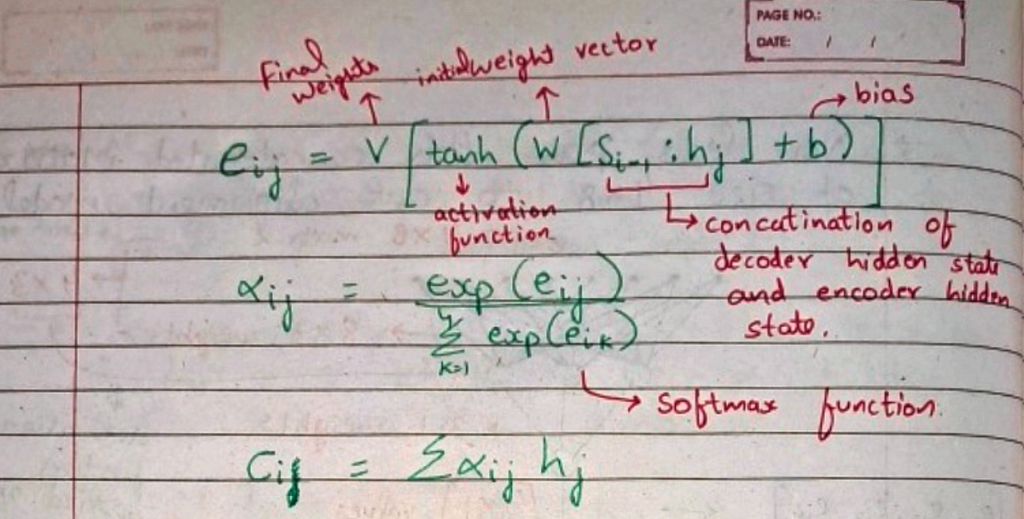 PAGE NO.:
DATE: / /
Final weights
initial weight vector
bias
eij = V [tanh (W [Si-1 : hj] + b)]
activation function
concatination of
decoder hidden state
and encoder hidden
state.
αij = exp(eij) / Σ k=1 exp(eik)
softmax function.
Cij = Σαij hj